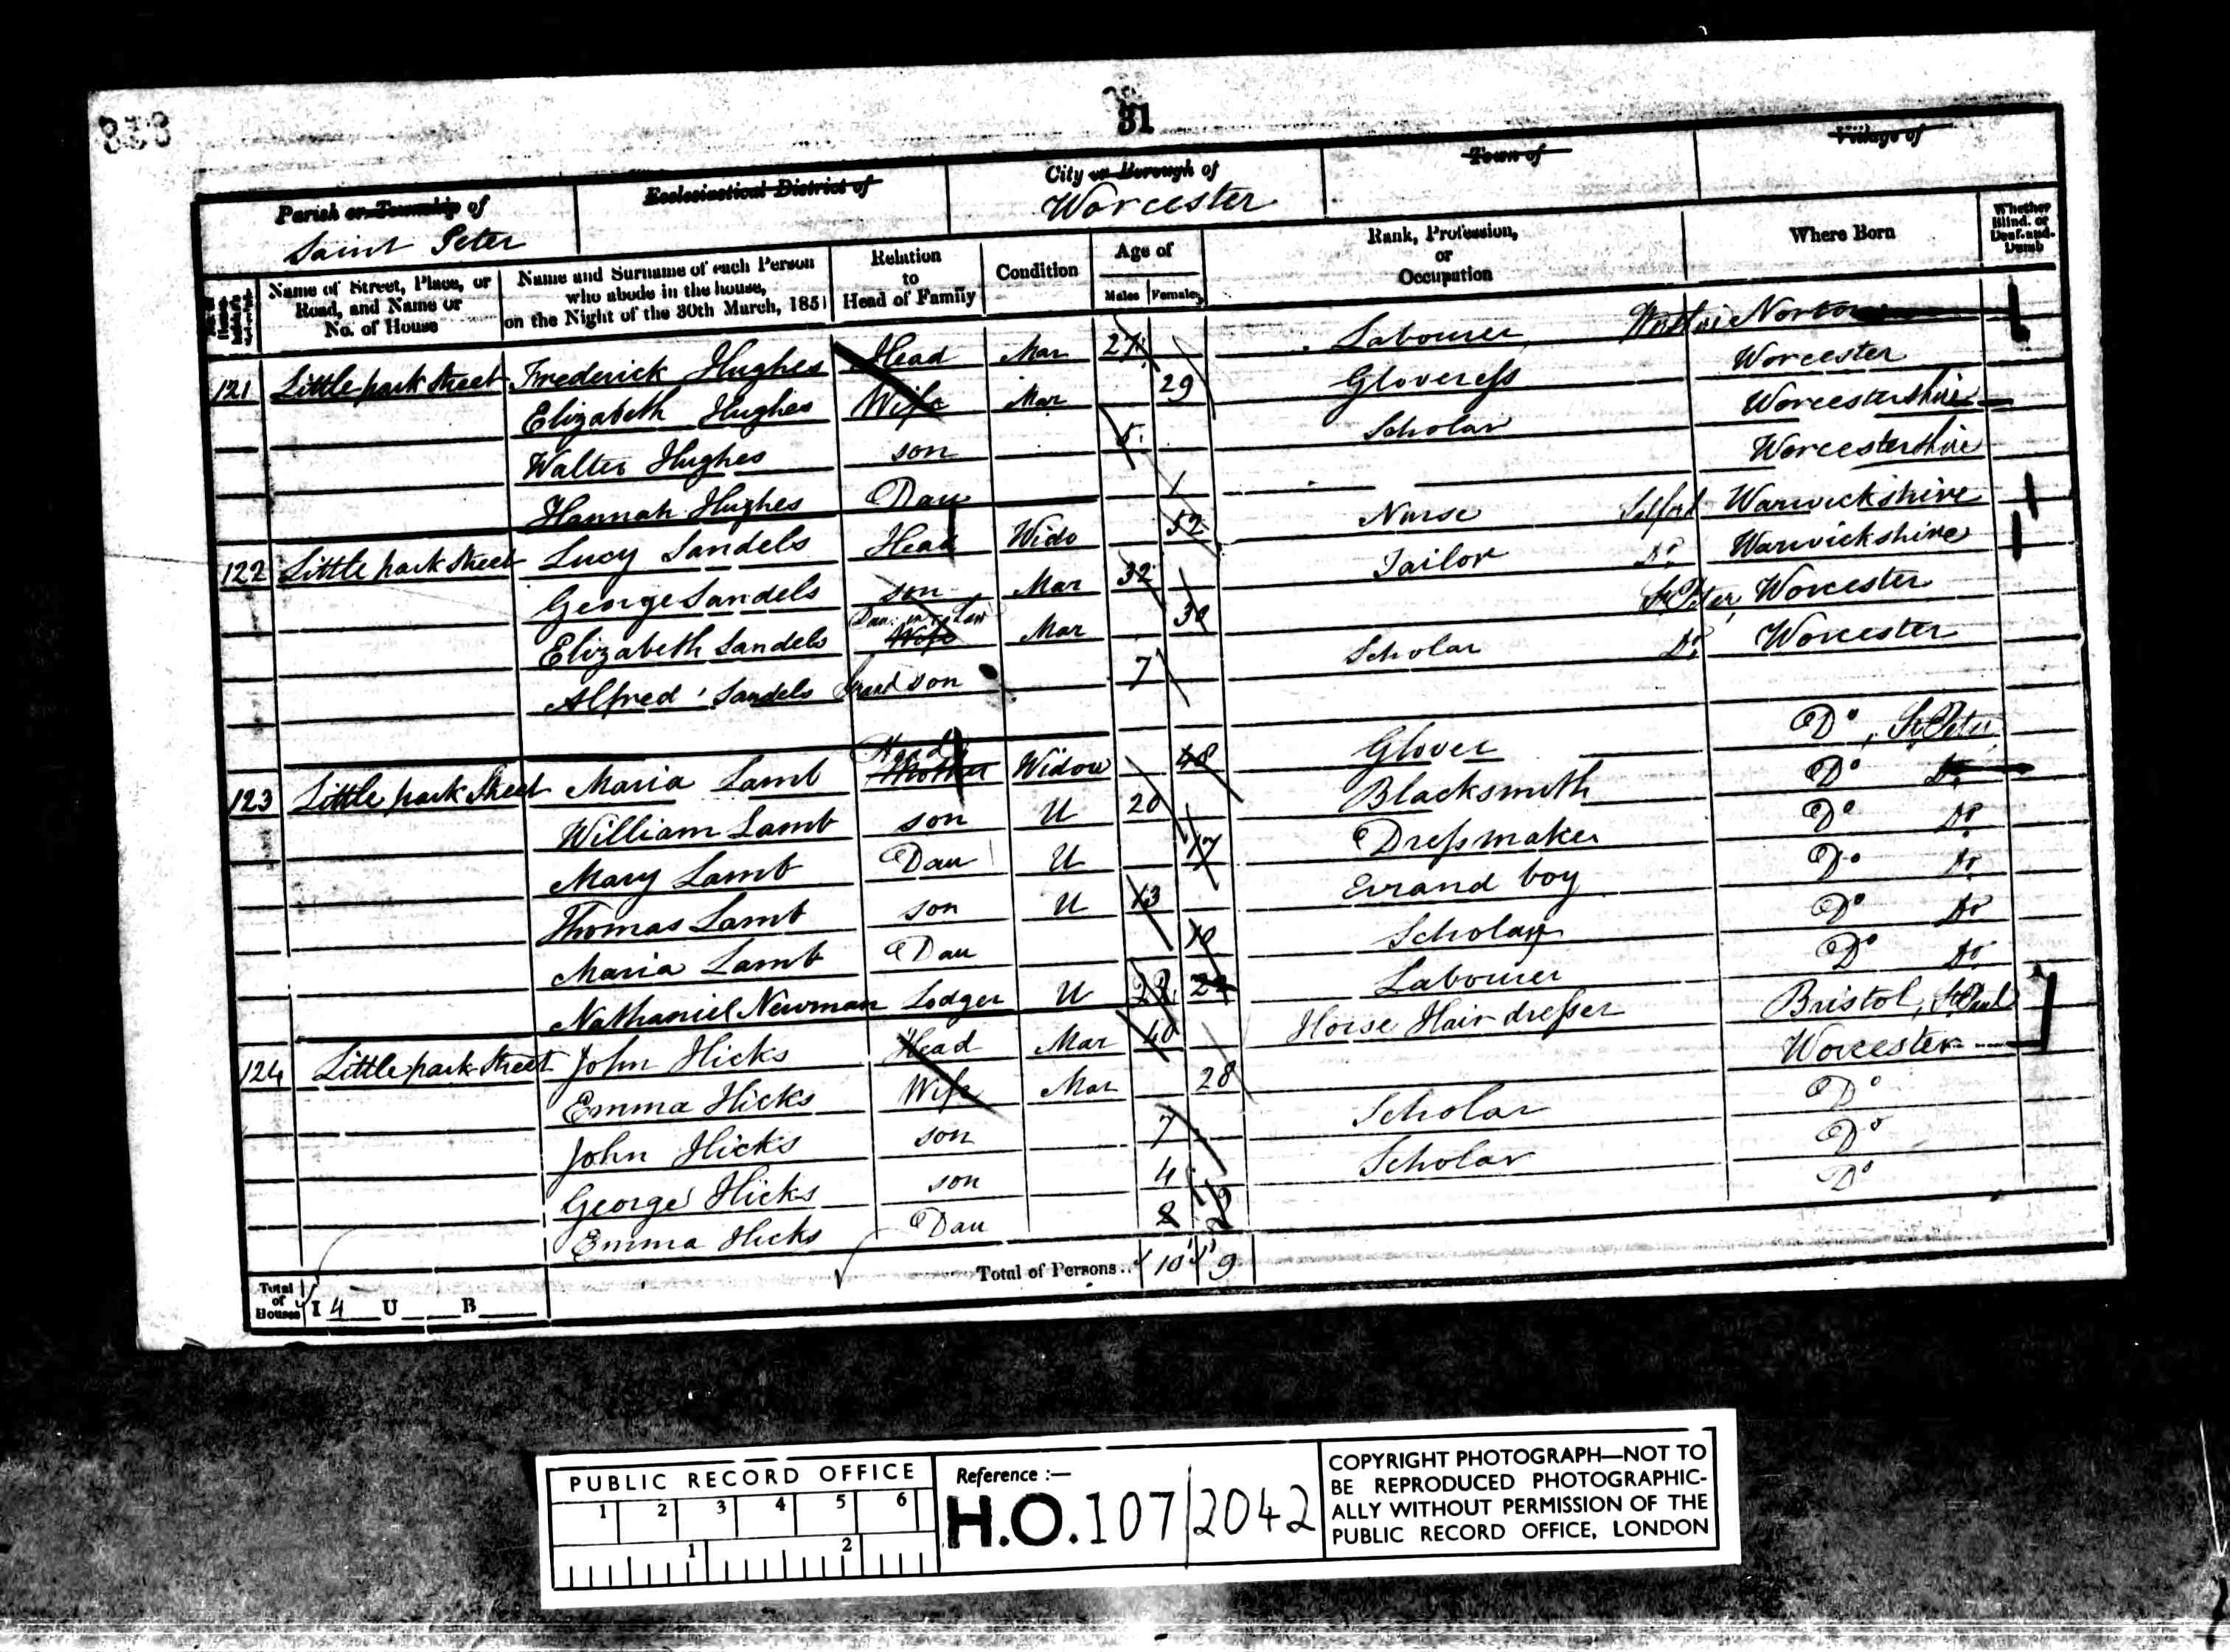 31
Parish or Township of Saint Peter
Ecclesiastical District of
City or Borough of Worcester
Town of
Village of
Name of Street, Place, or Road, and Name or No. of House
Name and Surname of each Person who abode in the house, on the Night of the 30th March, 1851
Relation to Head of Family
Condition
Age of Males Females
Rank, Profession, or Occupation
Where Born
Whether Blind, or Deaf-and-Dumb
121 Little park Street Frederick Hughes Head Mar 27 Labourer Norton
Elizabeth Hughes Wife Mar 29 Gloveress Worcester
Walter Hughes son 5 Scholar Worcestershire
Hannah Hughes Dau 1 Worcestershire
122 Little park Street Lucy Sandels Head Wido 52 Nurse Warwickshire
George Sandels son Mar 32 Tailor Do. Warwickshire
Elizabeth Sandels Wife Dau. in Law Mar 30 St Peter, Worcester
Alfred Sandels Grand son 7 Scholar Do. Worcester
123 Little park Street Maria Lamb Mother Head Widow 48 Glover Do, St Peter
William Lamb son U 20 Blacksmith Do Do.
Mary Lamb Dau U 17 Dressmaker Do Do.
Thomas Lamb son U 13 Errand boy Do Do.
Maria Lamb Dau 10 Scholar Do Do
Nathaniel Newman Lodger U 22 22 Labourer Do Do.
124 Little park Street John Hicks Head Mar 40 Horse Hair dresser Bristol, St Paul
Emma Hicks Wife Mar 28 Worcester
John Hicks son 7 Scholar Do
George Hicks son 4 Scholar Do
Emma Hicks Dau 2 2 Do
Total of Houses I 4 U B Total of Persons.. 10 9
PUBLIC RECORD OFFICE
1 2 3 4 5 6
1 2
Reference :—
H.O. 107/2042
COPYRIGHT PHOTOGRAPH—NOT TO
BE REPRODUCED PHOTOGRAPHIC-
ALLY WITHOUT PERMISSION OF THE
PUBLIC RECORD OFFICE, LONDON